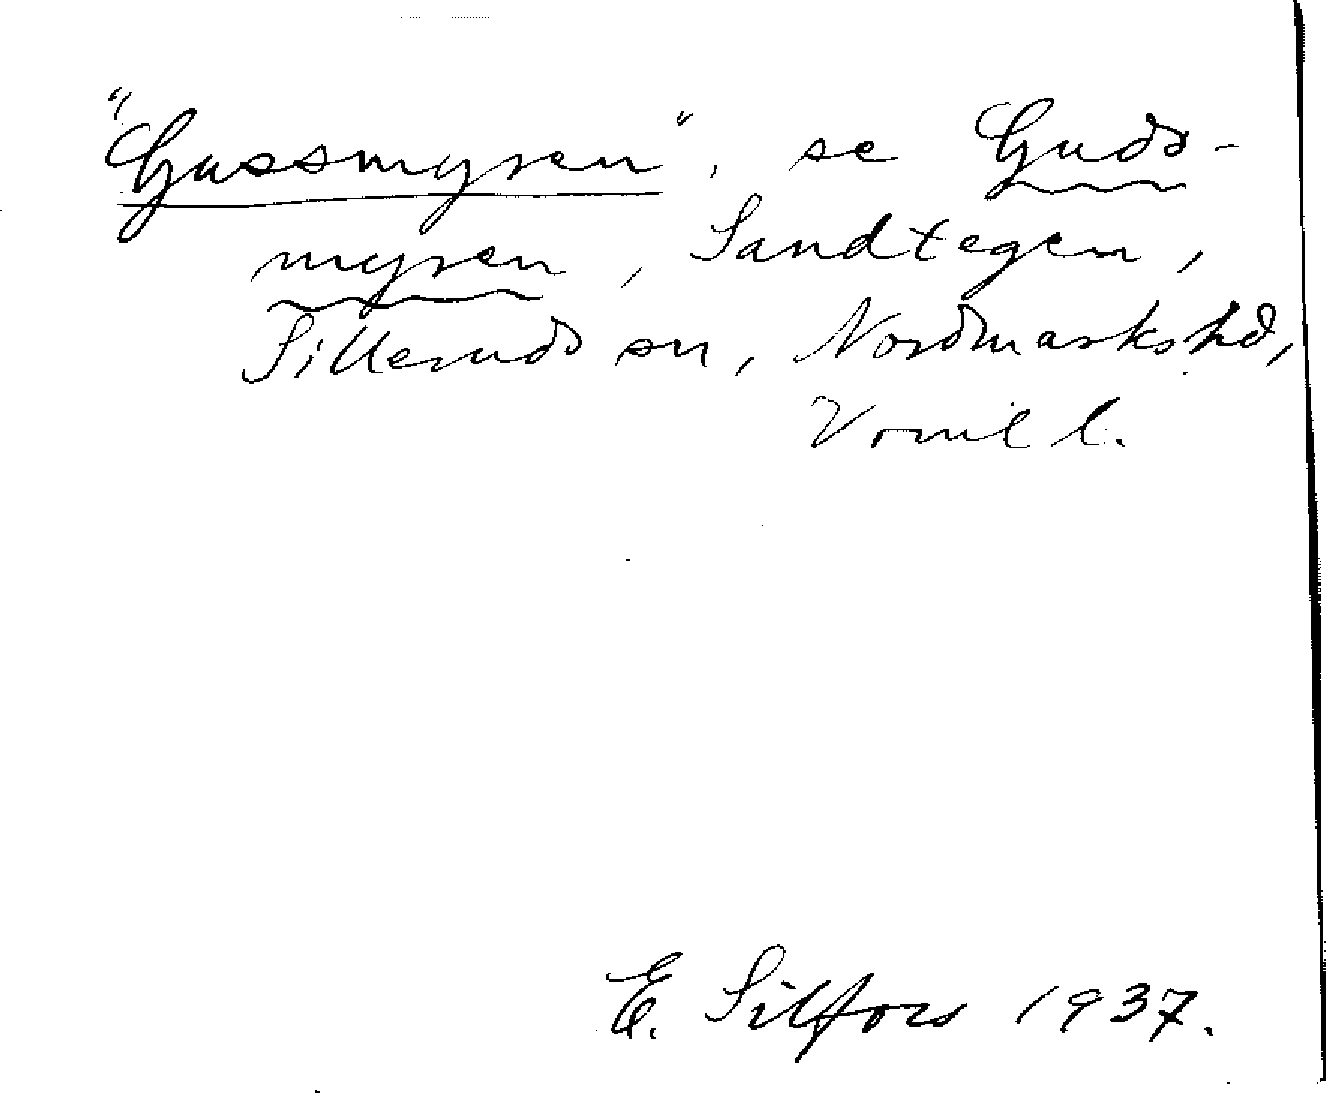 "Gussmyren", se Guds-
myren, Sandtegen,
Silleruds sn, Nordmarks hd,
Vrml l.
E. Silfors 1937.